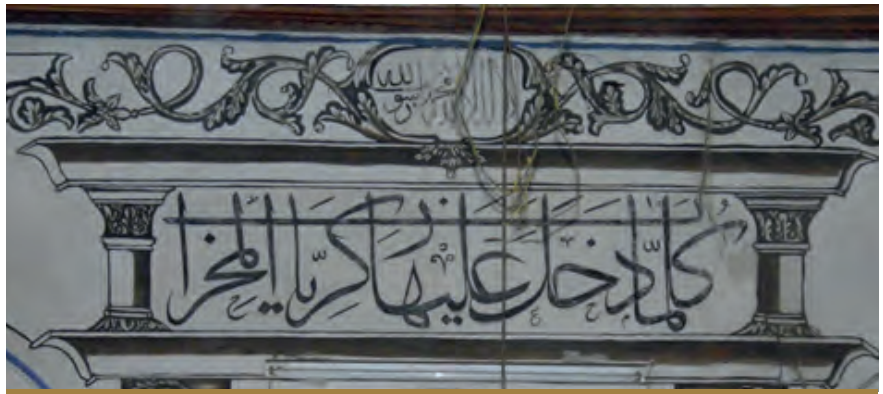 لا اله الا الله محمد رسول الله
كلما دخل عليها زكريا المحراب